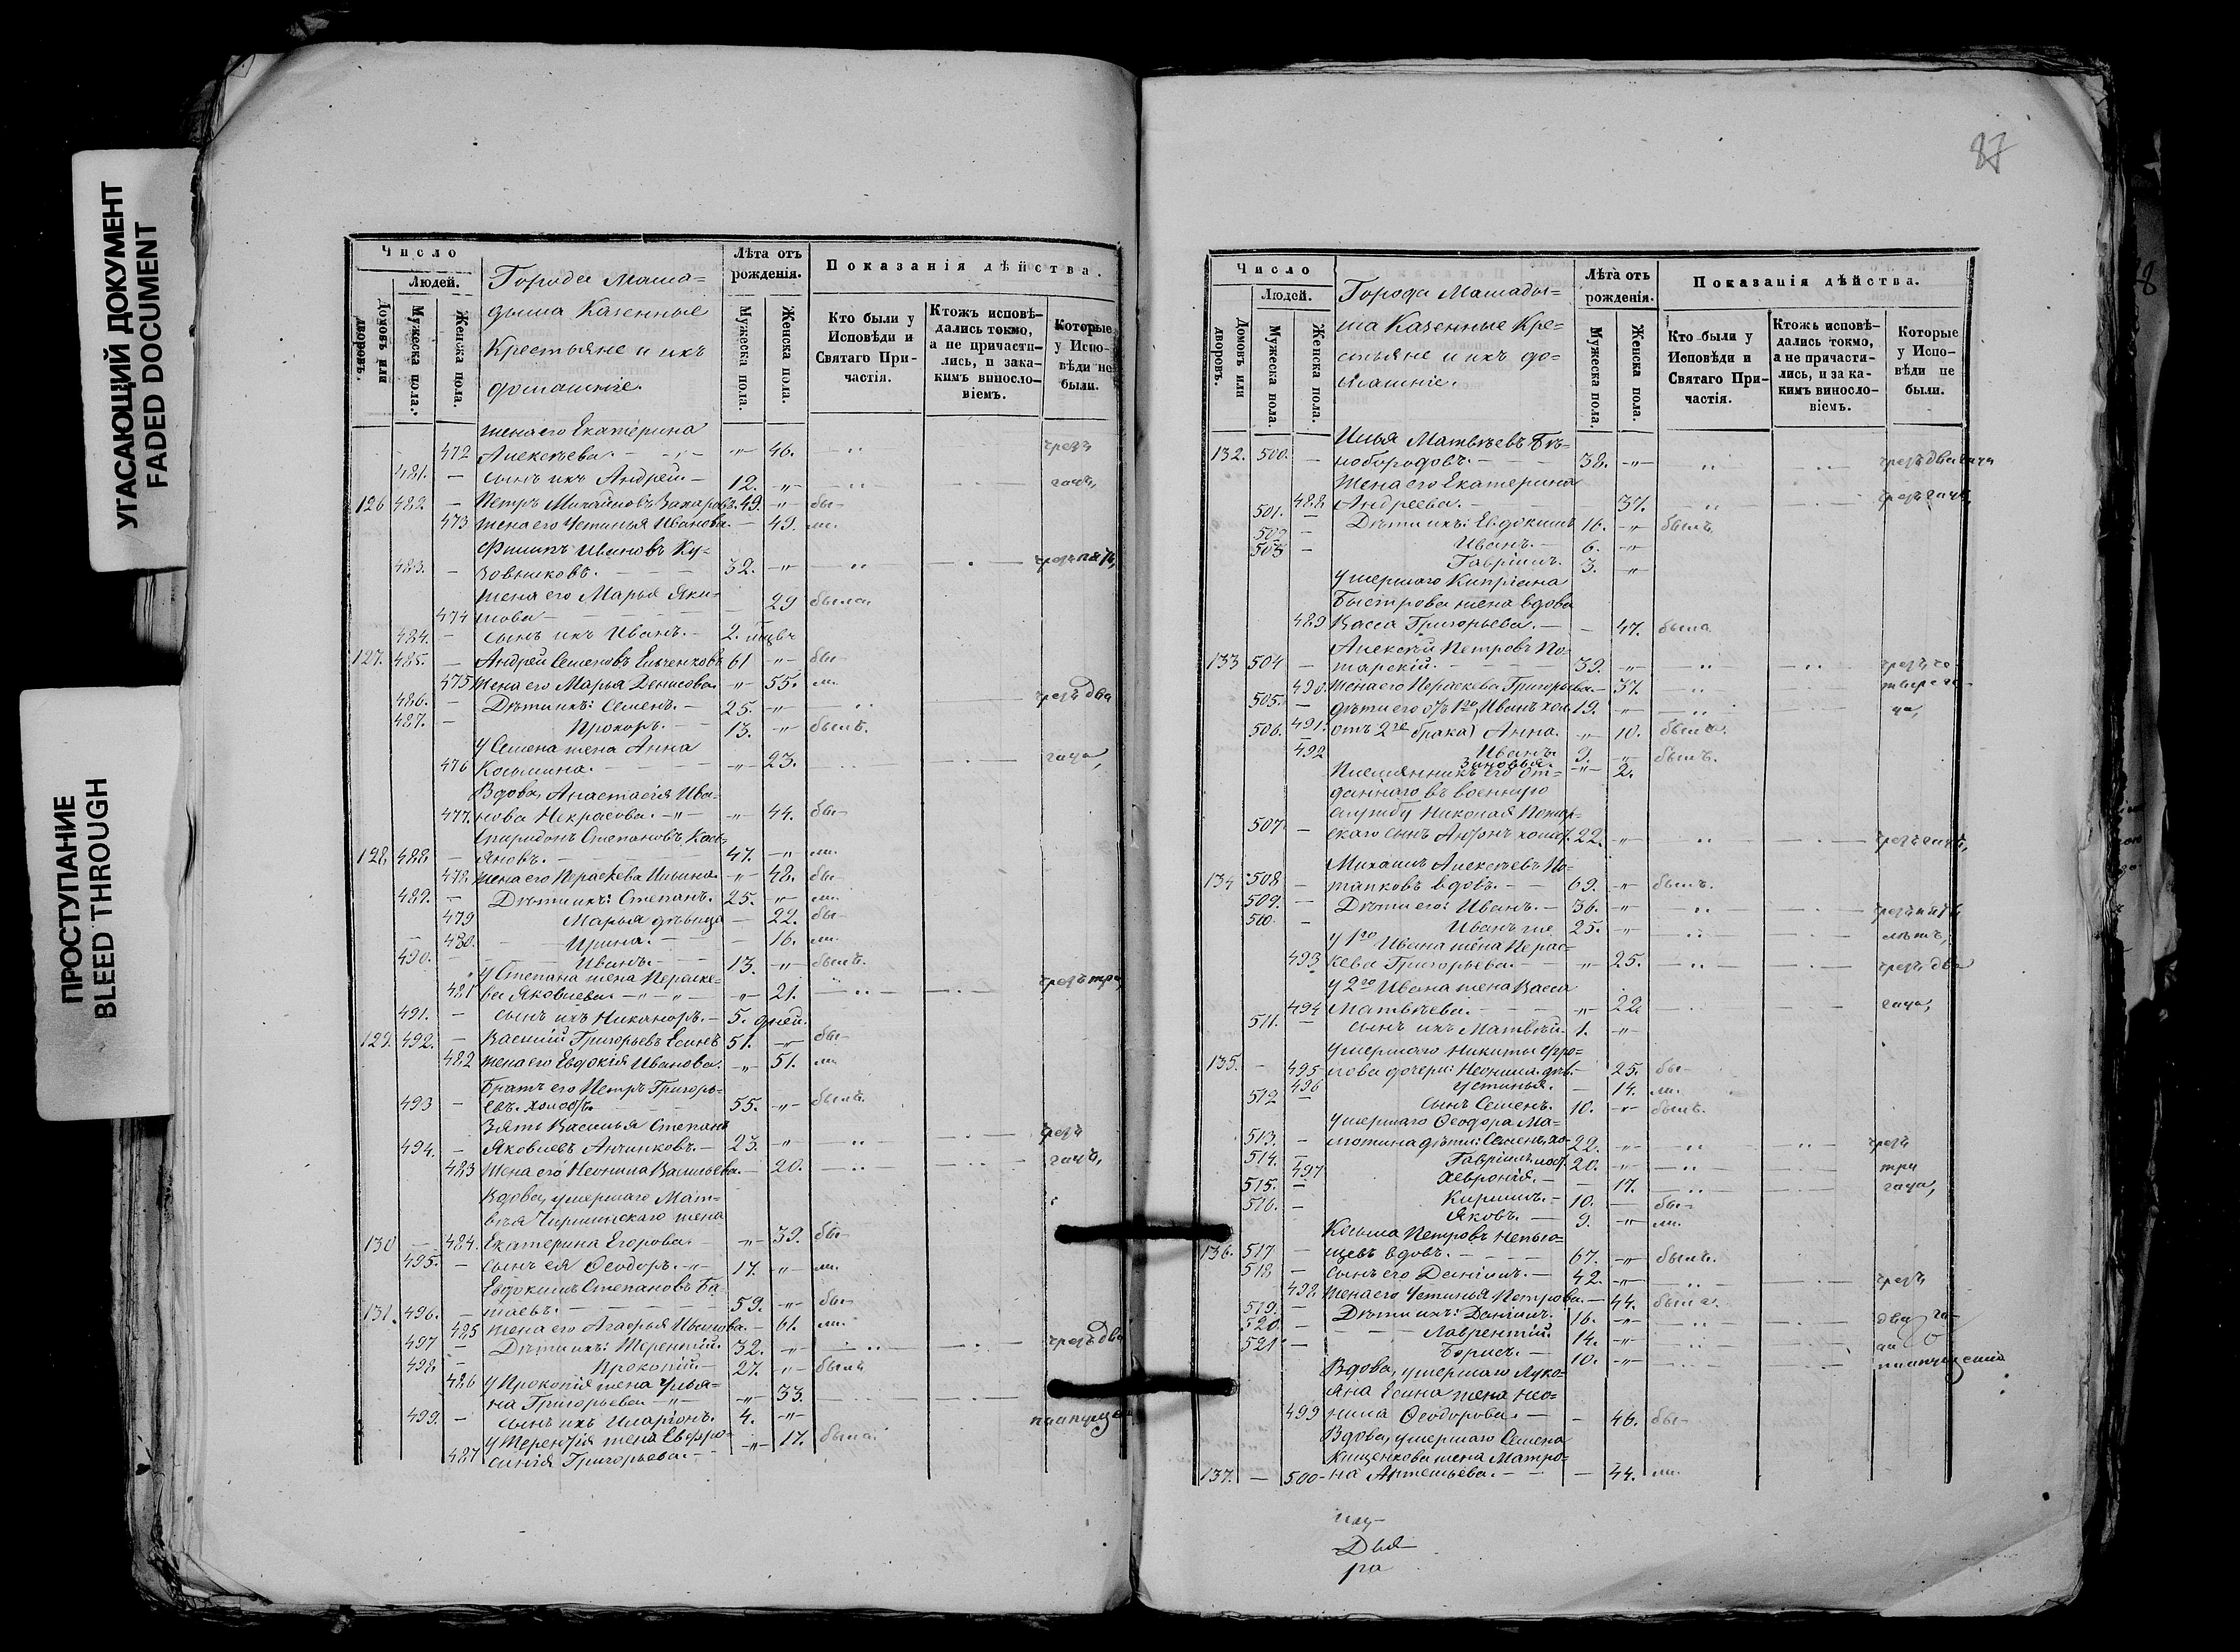 УГАСАЮЩИЙ ДОКУМЕНТ
FADED DOCUMENT
ПРОСТУПАНИЕ
BLEED THROUGH
Число
Людей.
Домовъ или дворовъ.
Мужеска пола.
Женска пола.
Города Мама=
дыша Казенные
Крестьяне и ихъ
домашніе.
Лѣта отъ рожденія.
Мужеска пола.
Женска пола.
Показанія дѣйства.
Кто были у Исповѣди и Святаго При-частія.
Ктожъ исповѣ-дались токмо, а не причасти-лись, и зака-кимъ винословіемъ.
Которые у Испо-вѣди не были.
жена его Екатерина
472 Алексѣева. - 46.
481. - сынъ ихъ Андрей - 12.
126 482 - Петръ Михайловъ Захаровъ. 49. бы-
473 жена его Устинья Иванова. - 49. ли.
Филипъ Ивановъ Ку=
483. - зовниковъ. 32.
жена его Марья Яки=
474 мова 29 была
484. - сынъ ихъ Иванъ. - 2.
127. 485. - Андрей Семеновъ 61 бы-
475 жена его Марья Денисова 55. ли.
486. - Дѣти ихъ: Семенъ. - 25. чрезъ два
487. - Прохоръ. 13. былъ.
У Семена жена Анна
476 Косьмина. 23.
Вдова, Анастасія Ива=
477. нова Некрасова. 44. бы-
Спиридонъ Степановъ Кась=
128. 488. яновъ. 47. ли.
478. жена его Параскева Ильина. 48. бы-
489. - Дѣти ихъ: Степанъ. 25. ли.
479 Марья дѣвица - 22. бы-
480. Ирина. - 16. ли.
490. Иванъ. 13. былъ.
У Степана жена Параске=
481 ва Яковлева. 21. чрезъ три
491. - сынъ ихъ Никаноръ. - 5. дней.
129. 492. - Василій Григорьевъ Есинъ 51. бы-
482 жена его Евдокія Иванова. 51. ли
Братъ его Петръ Григорь=
493 - евъ. холостъ. 55. былъ.
Зять Василья Степанъ
494. - Яковлевъ Анчиковъ. - 23. чрезъ
483 жена его Неонила Васильева. - 20.
Вдова, умершаго Мат=
вѣя Чиршинскаго жена
130 - 484. Екатерина Егорова. 39. бы-
495. - сынъ ея Ѳеодоръ. 17. ли.
Евдокимъ Степановъ Ба=
131. 496. - таевъ. 59. бы-
485 жена его Агафья Иванова. - 61. ли.
497 - Дѣти ихъ: Терентій. 32. чрезъ два
498. - Прокопій. 27. былъ
486 У Прокопія жена Улья=
на Григорьева 33.
499. - сынъ ихъ Иларіонъ. 4.
У Терентія жена Евфро=
487 синія Григорьева. 17. была.
87
Число
Людей.
Домовъ или дворовъ.
Мужеска пола.
Женска пола.
Города Мамады=
ша Казенные Кре=
стьяне и ихъ до=
машніе.
Лѣта отъ рожденія.
Мужеска пола.
Женска пола.
Показанія дѣйства.
Кто были у Исповѣди и Святаго При-частія.
Ктожъ исповѣ-дались токмо, а не причасти-лись, и за ка-кимъ винословіемъ.
Которые у Испо-вѣди не были.
Илья Матвѣевъ Бѣ=
132. 500. - лобородовъ. 38.
жена его Екатерина
488 Андреева. 37.
501. - Дѣти ихъ: Евдокимъ 16. былъ
502 - Иванъ. - 6.
503 - Гавріилъ. 3.
Умершаго Кипріана
Быстрова жена вдова
489 Васса Григорьева. - 47. была
Алексѣй Петровъ По=
133 504 - тарскій. 39.
490. жена его Параскева Григорьева. - 37.
505. - дѣти его отъ 1го Иванъ хол. 19.
506. 491. отъ 2го брака) Анна. 10. была.
492 Иванъ. 9. былъ.
Зиновья. 2.
Племянникъ его от=
даннаго въ военную
службу Николая Потар=
507. - скаго сынъ Антонъ холост. 22.
Михаилъ Алексѣевъ По=
134 508 - тапковъ вдовъ. 69. былъ.
509. - Дѣти его: Иванъ. - 36. чрезъ пять
510. Иванъ же 25. лѣтъ,
У 1го Ивана жена Парас=
493 кева Григорьева. 25. чрезъ два
У 2го Ивана жена Васса
494 Матвѣева. 22.
511. - сынъ ихъ Матвѣй. 1.
Умершаго Никиты
135. - 495 дочери: Неонила дѣв. - 25. бы-
496 Устинья. - 14. ли.
512 сынъ Семенъ. 10. былъ.
Умершаго Ѳеодора Ма=
513. - лютина дѣти: Семенъ хо= 22. чрезъ
514. - Гавріилъ 20. три
497 Хевронія. - 17.
515. - Кирилъ. - 10. бы-
516. - Яковъ. - 9. ли.
Косьма Петровъ Непью=
136. 517 - щевъ вдовъ. 67. былъ.
518 - сынъ его Даніилъ. - 42. чрезъ
498. жена его Устинья Петрова. - 44. была.
519. - Дѣти ихъ: Даніилъ 16. два
520. - Лаврентій. 14.
521 - Борисъ. - 10.
Вдова, умершаго Лукь=
яна Есина жена Нео=
499 нила Ѳеодорова. - 46. бы-
Вдова, умершаго Семена
Кищенкова жена Матро=
137. - 500 на Артемьева. - 44. ли.